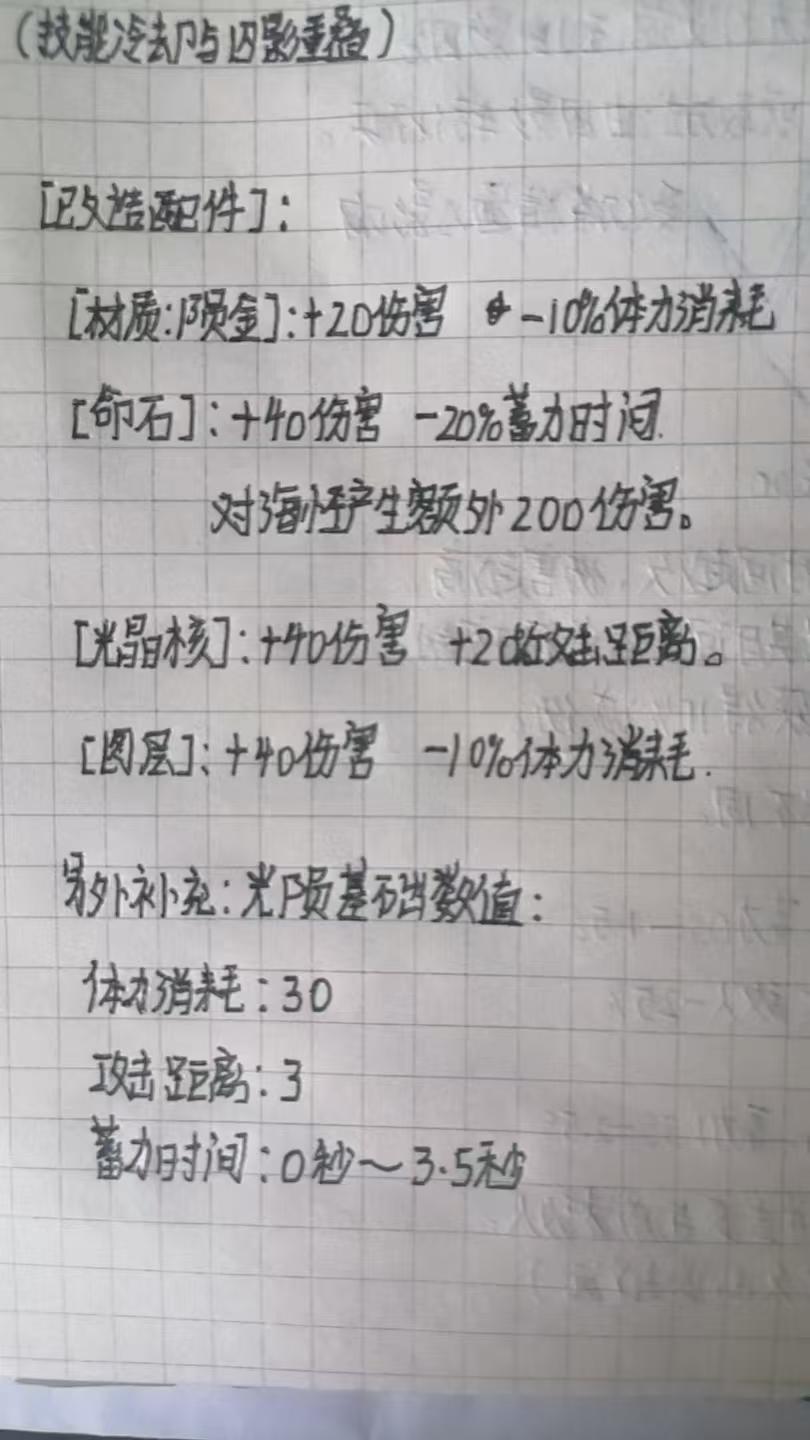 (技能冷却与囚影重叠)
[改造配件]:
[材质:陨金]:+20伤害 -10%体力消耗
[命石]:+40伤害 -20%蓄力时间.
对海怪产生额外200伤害。
[光晶核]:+40伤害 +2攻击距离。
[图层]:+40伤害 -10%体力消耗.
另外补充:光陨基础数值:
体力消耗:30
攻击距离:3
蓄力时间:0秒~3.5秒